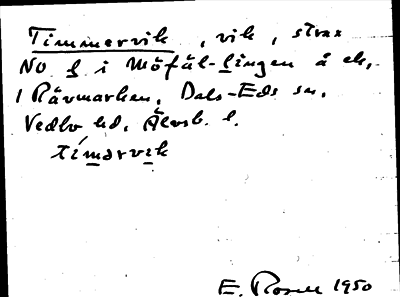 Timmervik, vik, strax
NO l i Möfäl-lingen å ek,
1 Rävmarken, Dals-Eds sn,
Vedbo hd, Älvsb. l.
tímərvik
E. Rosell 1950